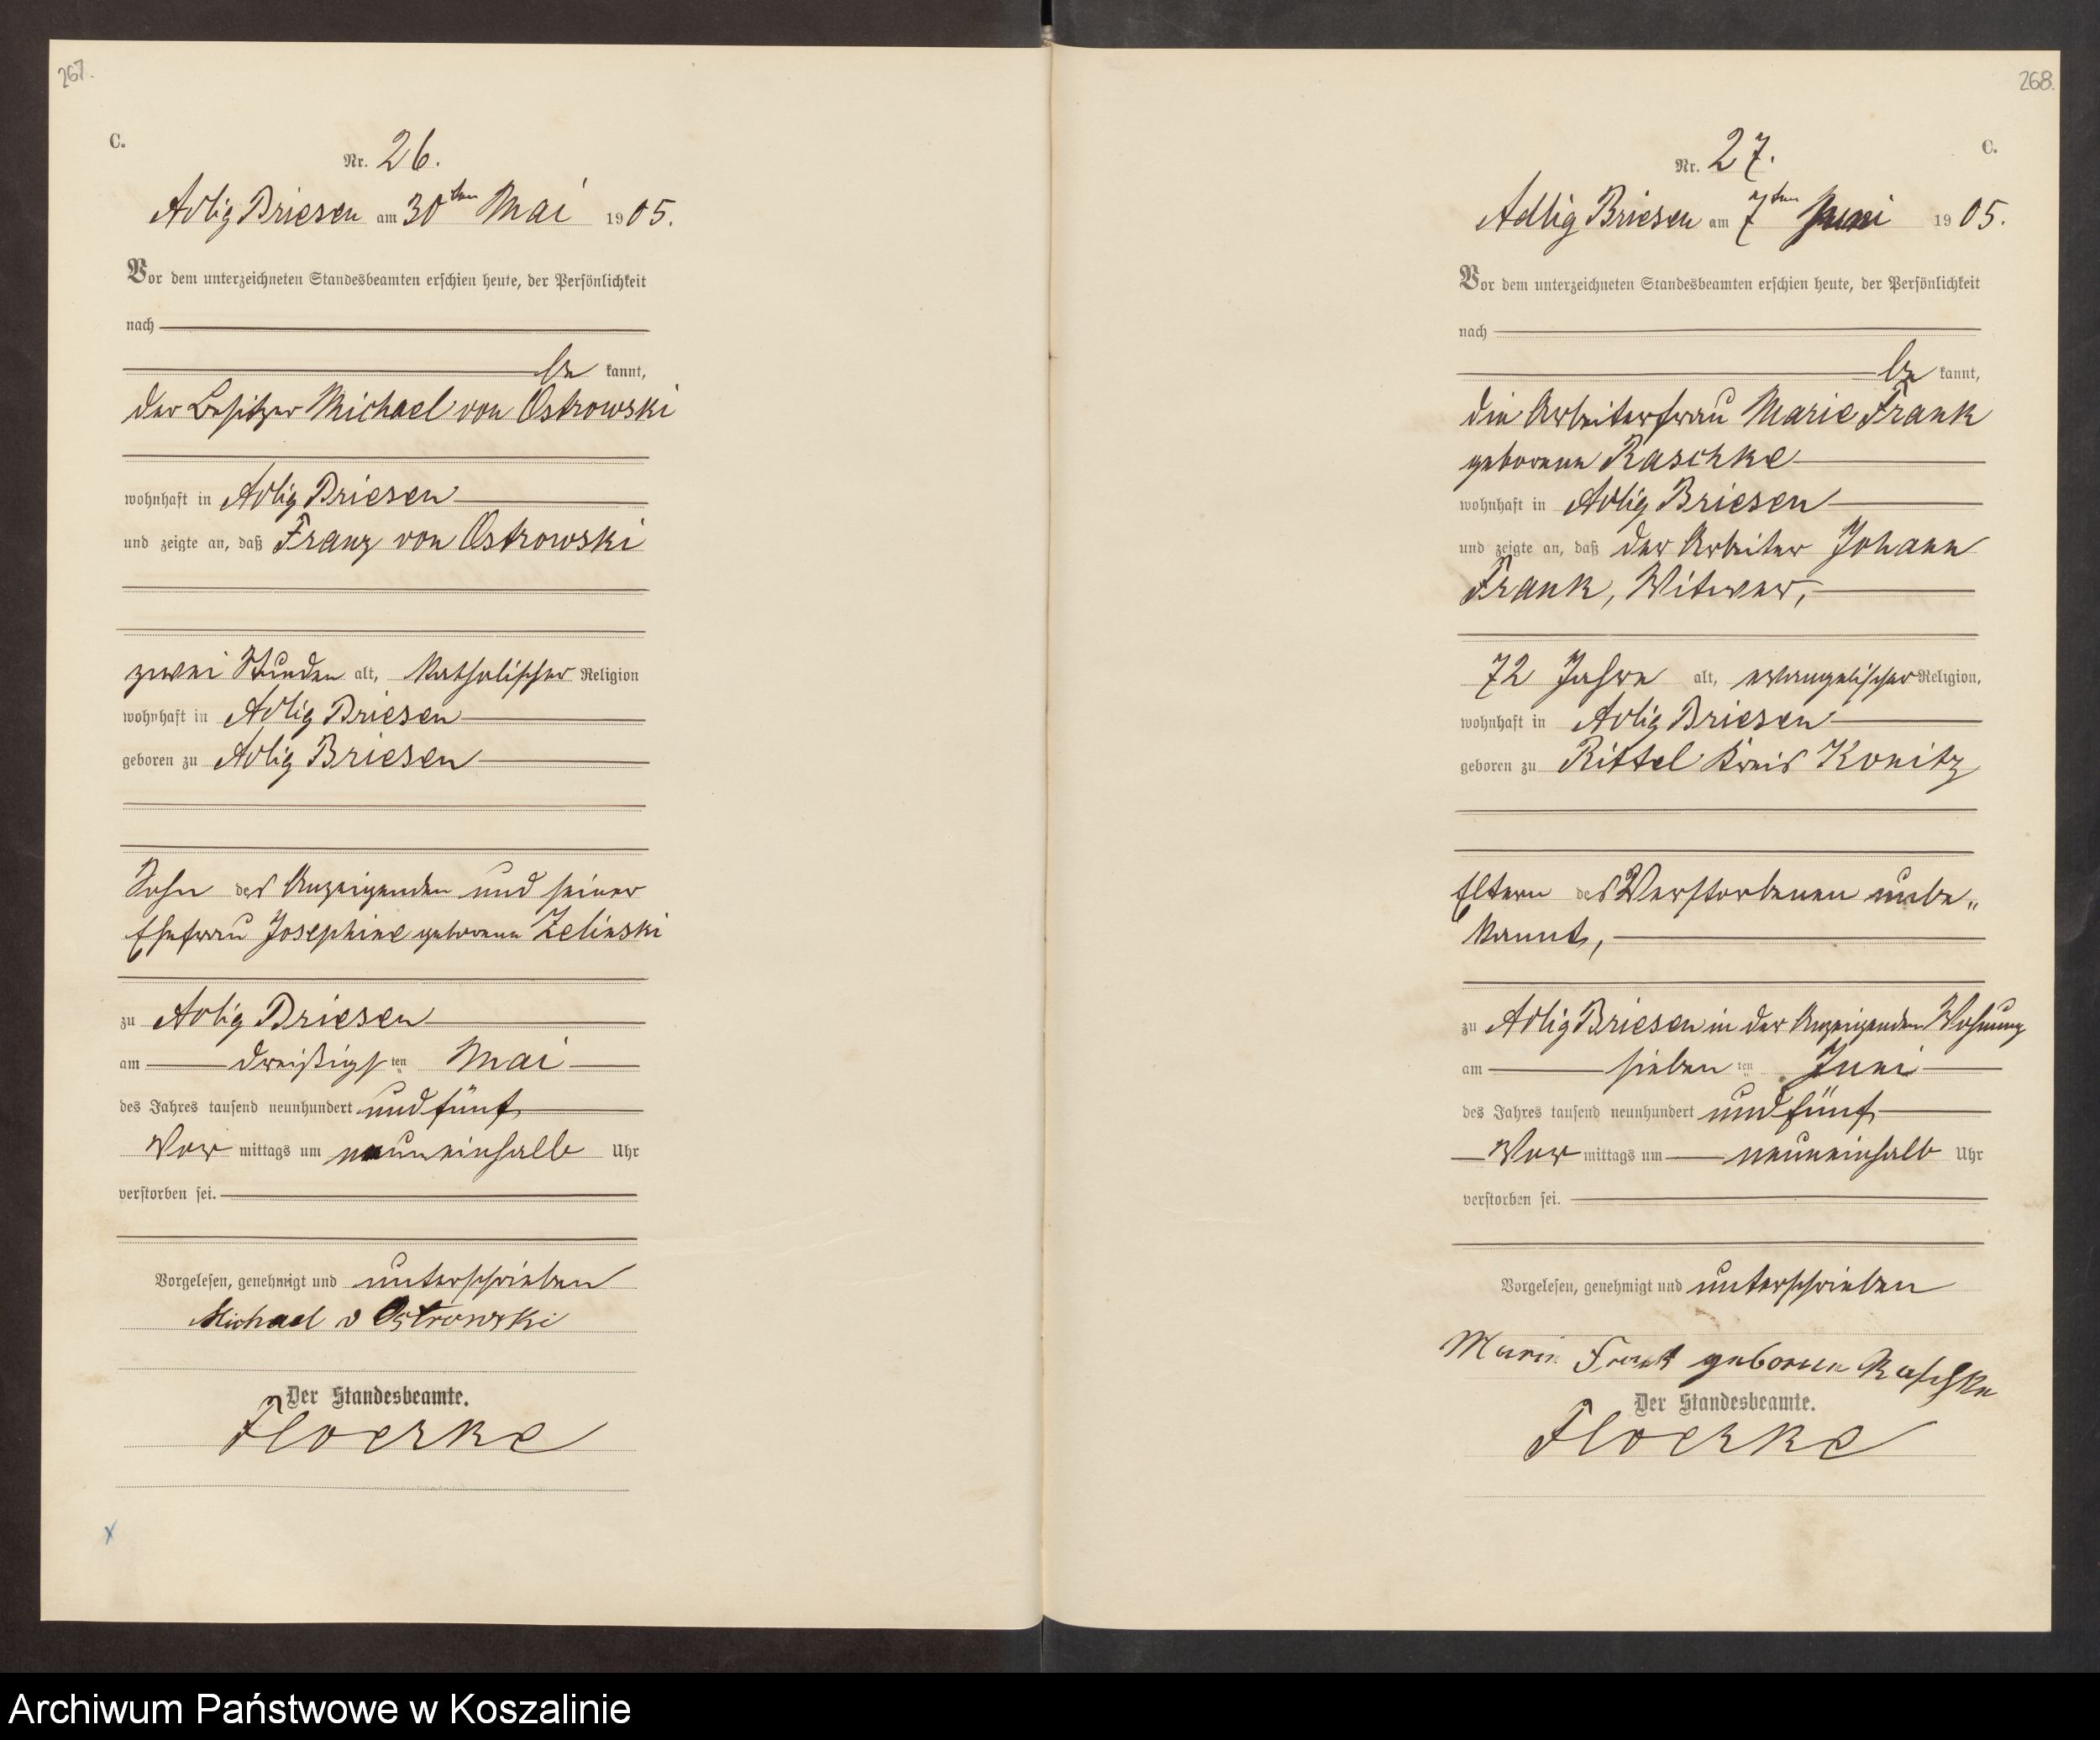 267.
C.
Nr. 26.
Adlig Briesen am 30ten Mai 1905.
Vor dem unterzeichneten Standesbeamten erschien heute, der Persönlichkeit
nach
be kannt,
der Besitzer Michael von Ostrowski
wohnhaft in Adlig Briesen
und zeigte an, daß Franz von Ostrowski
zwei Stunden alt, katholischer Religion
wohnhaft in Adlig Briesen
geboren zu Adlig Briesen
Sohn des Anzeigenden und seiner
Ehefrau Josephine geborene Zelinski
zu Adlig Briesen
am dreißigsten Mai
des Jahres tausend neunhundert und fünf
Vor mittags um neuneinhalb Uhr
verstorben sei.
Vorgelesen, genehmigt und unterschrieben
Michael v Ostrowski
Der Standesbeamte.
Floerke
268.
C.
Nr. 27.
Adlig Briesen am 7ten Juni 1905.
Vor dem unterzeichneten Standesbeamten erschien heute, der Persönlichkeit
nach
be kannt,
die Arbeiterfrau Marie Frank
geborene Raschke
wohnhaft in Adlig Briesen
und zeigte an, daß der Arbeiter Johann
Frank, Witwer,
72 Jahre alt, evangelischer Religion,
wohnhaft in Adlig Briesen
geboren zu Rittel Kreis Konitz
Eltern des Verstorbenen unbe„
kannt,
zu Adlig Briesen in der Anzeigenden Wohnung
am siebenten Juni
des Jahres tausend neunhundert und fünf
Vor mittags um neuneinhalb Uhr
verstorben sei.
Vorgelesen, genehmigt und unterschrieben
Marie Frank geborene Raschke
Der Standesbeamte.
Floerke
Archiwum Państwowe w Koszalinie